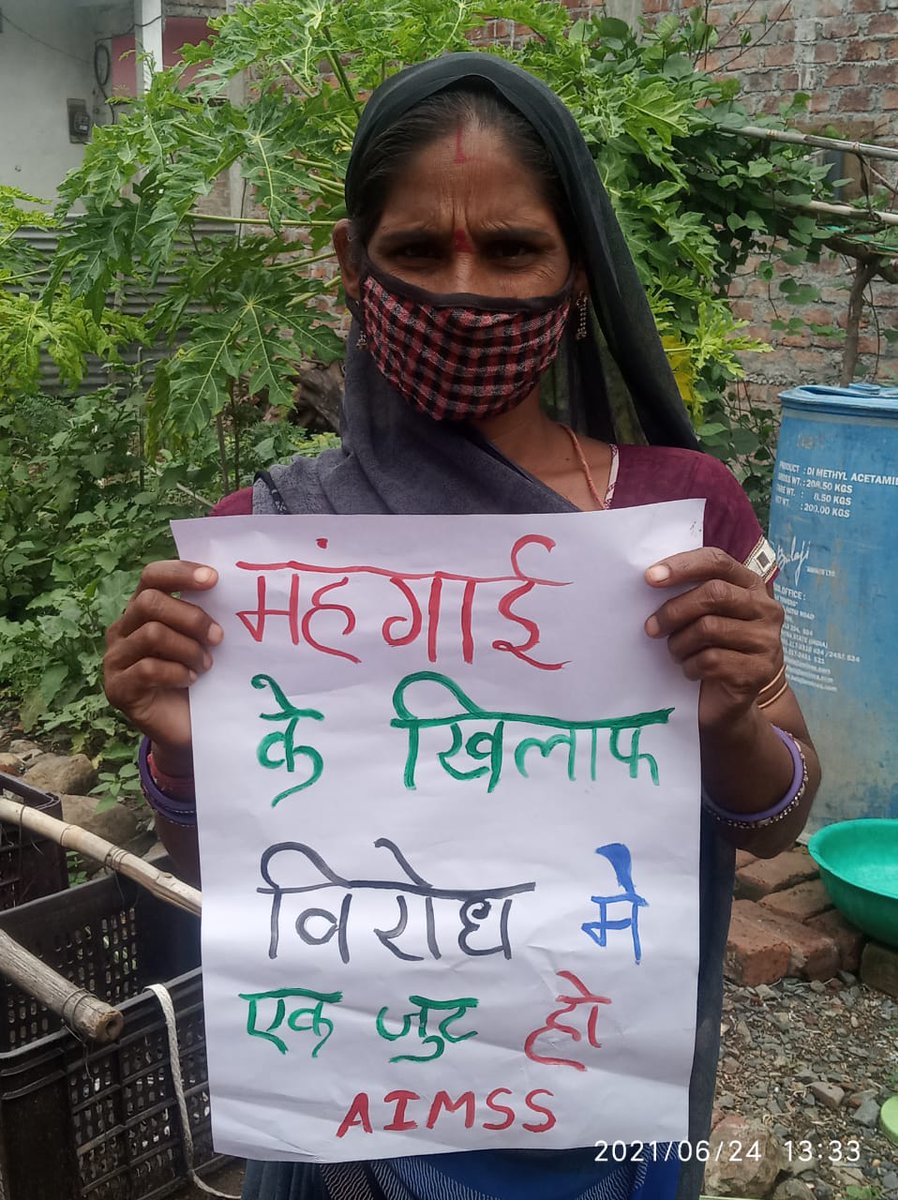 महंगाई
के खिलाफ
विरोध मे
एक जुट हो
AIMSS
PRODUCT : DI METHYL ACETAMI
GROSS WT. : 208.50 KGS
TARE WT. : 8.50 KGS
NET WT. : 200.00 KGS
Balaji
OFFICE :
2021/06/24 13:33